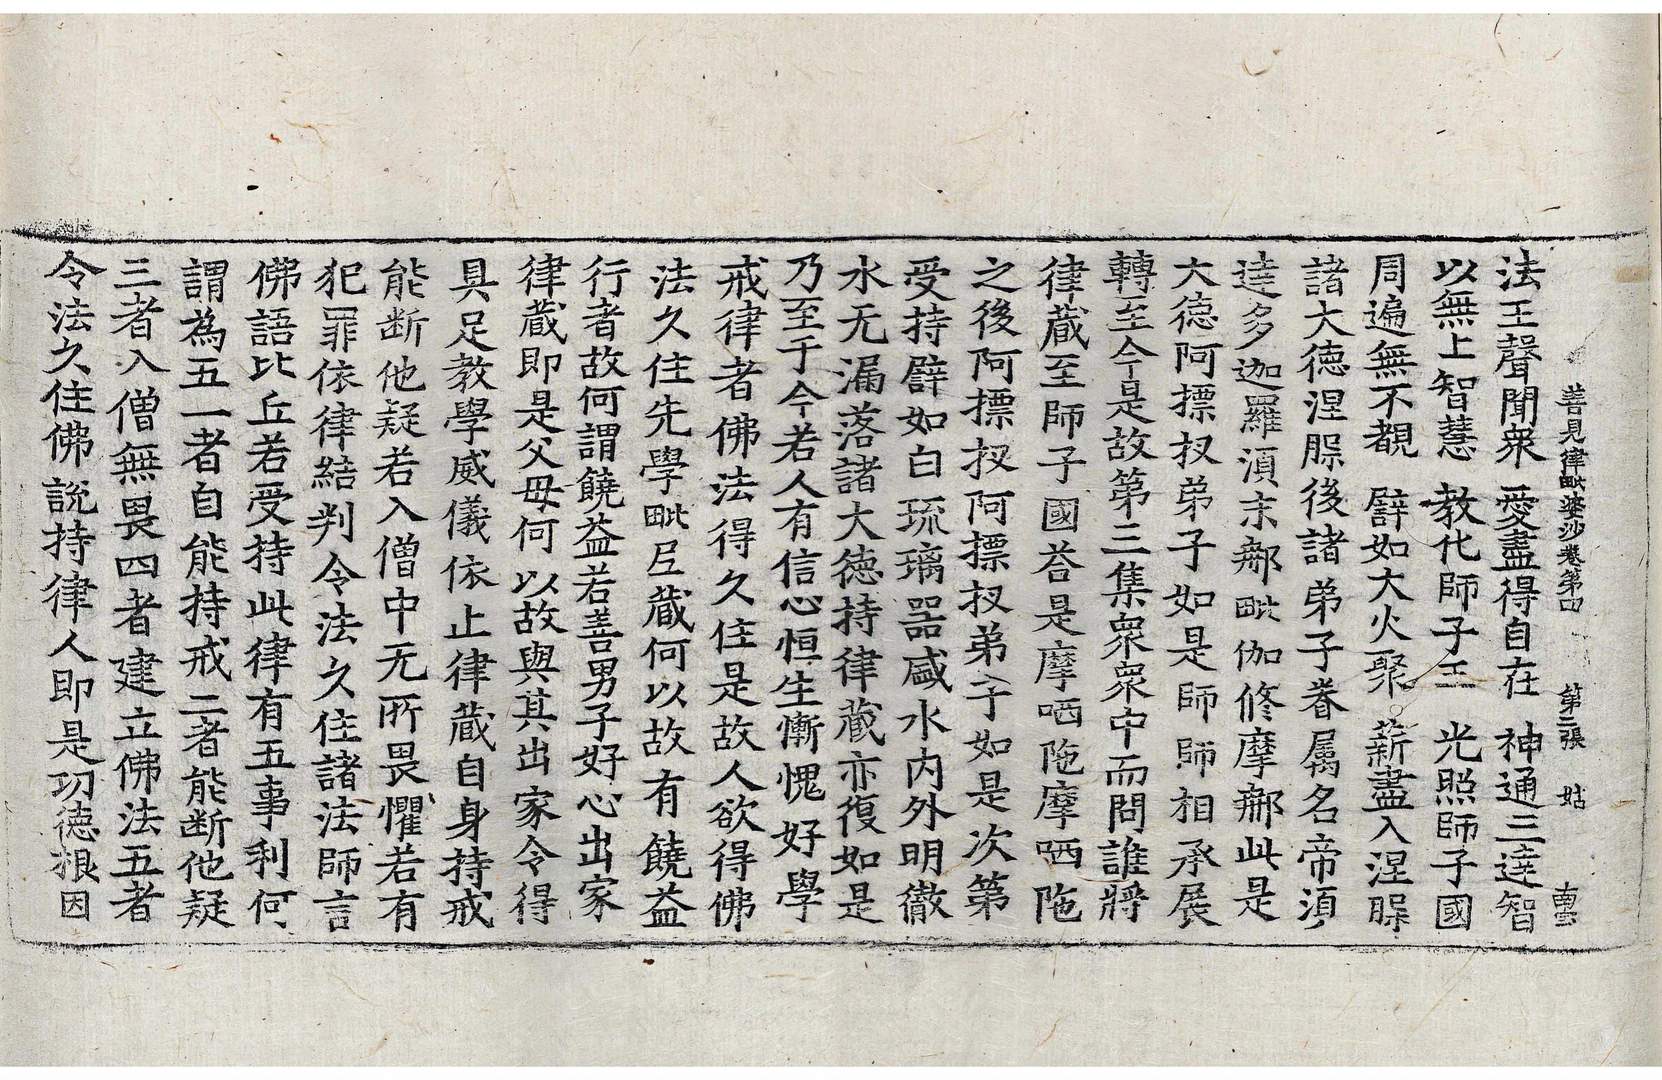 善見律毗婆沙卷第四 第二張 姑 南雲
法王聲聞衆 愛盡得自在 神通三達智
以無上智慧 教化師子王 光照師子國
周遍無不覩 譬如大火聚 薪盡入涅槃
諸大德涅槃後諸弟子眷屬名帝湏
達多迦羅湏末那毗伽修摩那此是
大德阿摽扠弟子如是師師相承展
轉至今是故第三集衆衆中而問誰將
律藏至師子國荅是摩哂陁摩哂陁
之後阿摽扠阿摽扠弟子如是次第
受持譬如白琉璃器盛水內外明徹
水无漏落諸大德持律藏亦復如是
乃至于今若人有信心恒生慚愧好學
戒律者佛法得久住是故人欲得佛
法久住先學毗尼藏何以故有饒益
行者故何謂饒益若善男子好心出家
律藏即是父母何以故與其出家令得
具足教學威儀依止律藏自身持戒
能断他疑若入僧中无所畏懼若有
犯罪依律結判令法久住諸法師言
佛語比丘若受持此律有五事利何
謂為五一者自能持戒二者能断他疑
三者入僧無畏四者建立佛法五者
令法久住佛說持律人即是功德根因